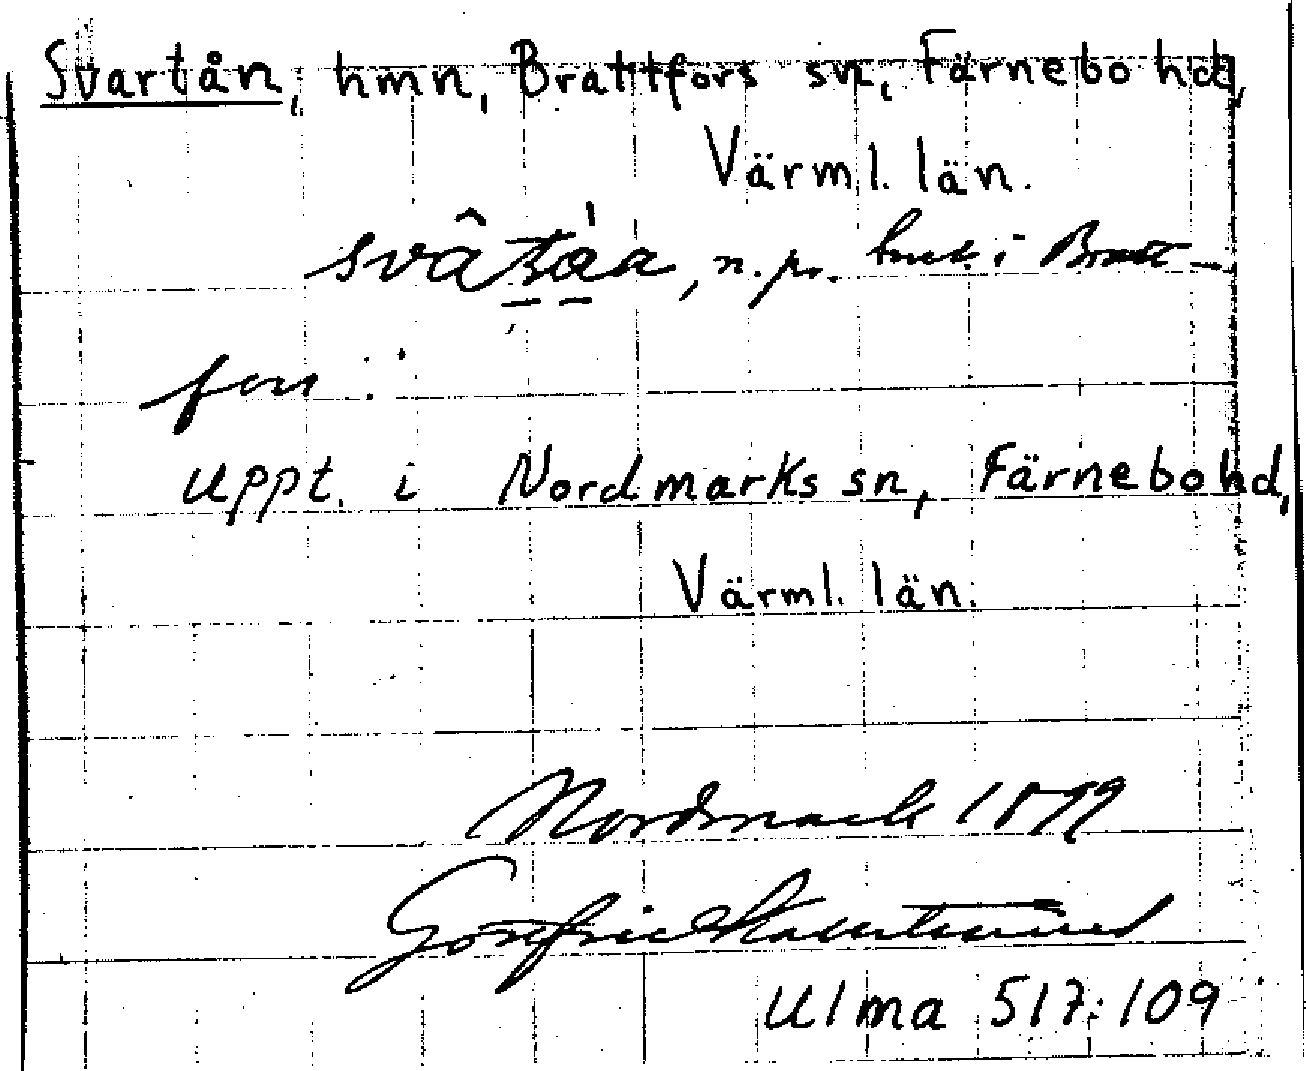 Svartån, hmn, Brattfors sn, Färnebo hd,
Värml. län.
n.pr. i Bratt-
fors
uppt. i Nordmarks sn, Färnebo hd,
Värml. län.
Nordmark 1879
Gottfrid Kallstenius
Ulma 517:109